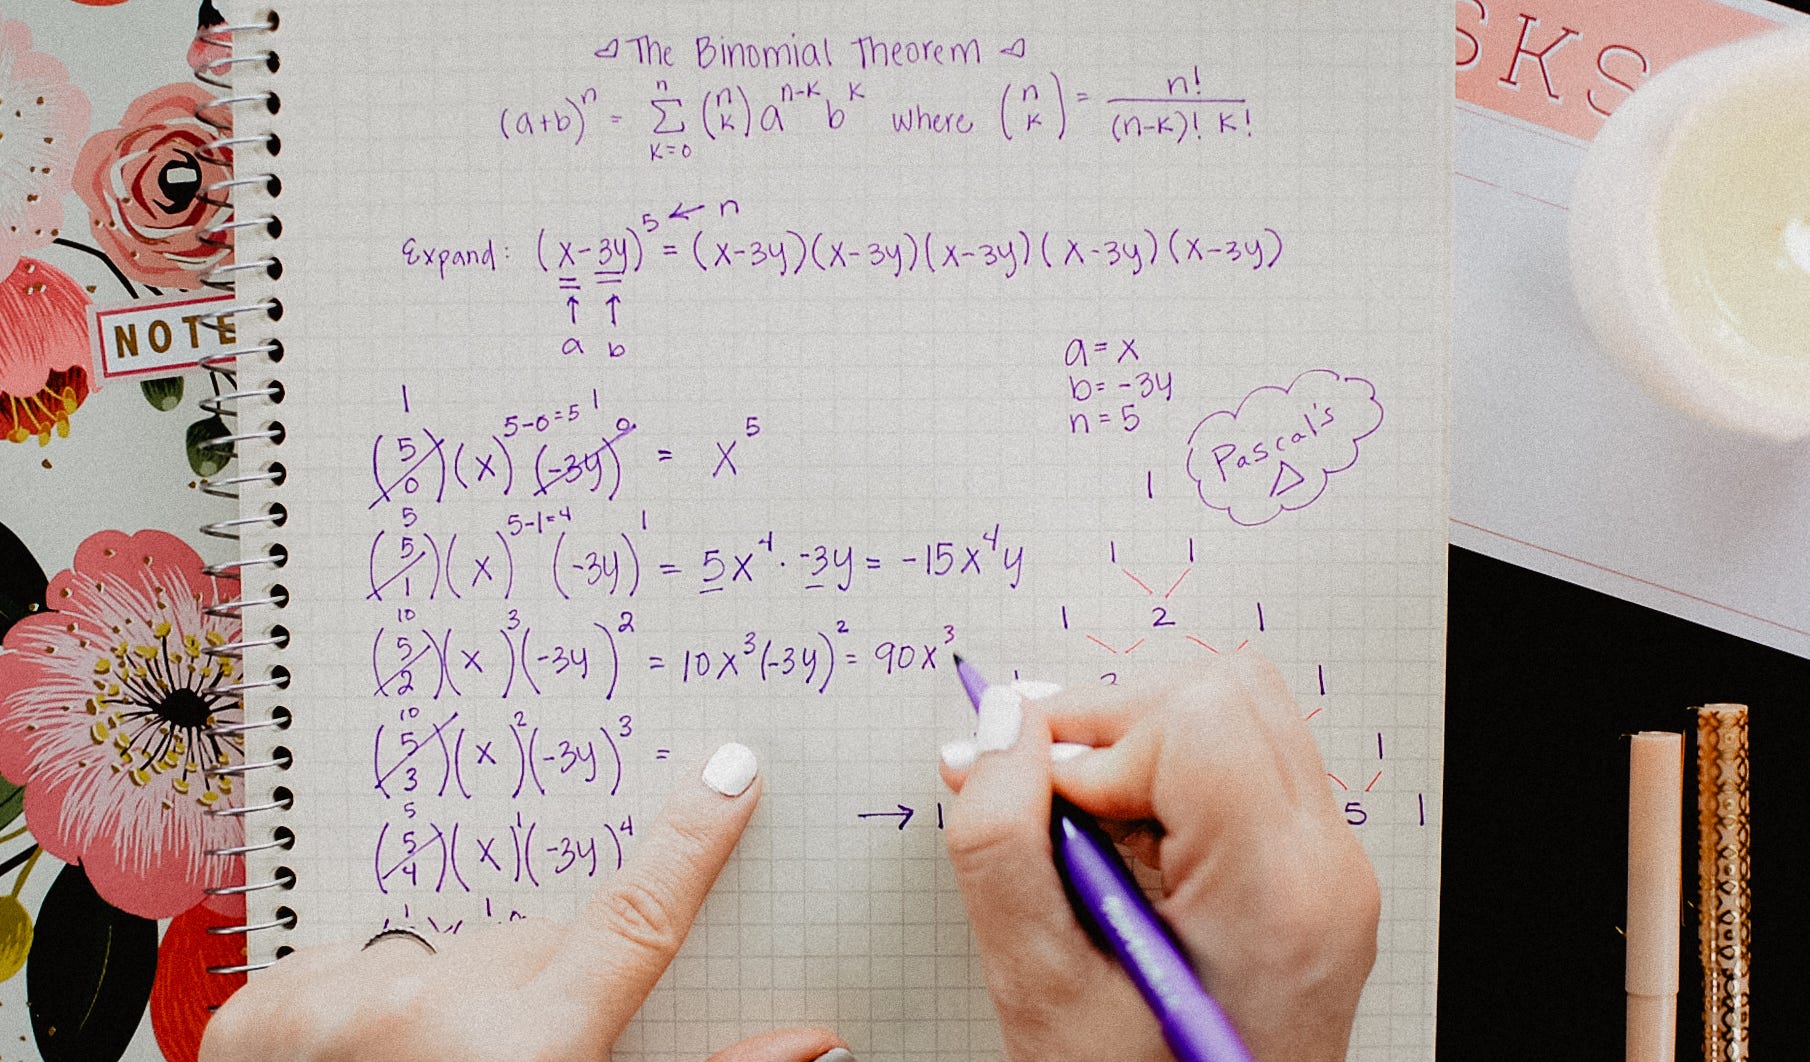 The Binomial Theorem
(a+b)^n = Σ_{k=0}^{n} (n k) a^{n-k} b^k where (n k) = n!/((n-k)! k!)
5 ← n
Expand: (x-3y)^5 = (x-3y)(x-3y)(x-3y)(x-3y)(x-3y)
↑ ↑
a b
NOTE
SKS
a = x
b = -3y
n = 5
Pascal's △
1
(5 0)(x)^{5-0=5} (-3y)^0 1 = x^5
5
(5 1)(x)^{5-1=4} (-3y)^1 = 5x^4 · -3y = -15x^4y
10
(5 2)(x)^3(-3y)^2 = 10x^3(-3y)^2 = 90x^3
10
(5 3)(x)^2(-3y)^3 =
5
(5 4)(x)^1(-3y)^4
1
1
1 1
1 2 1
1
1
→ 1 5 1